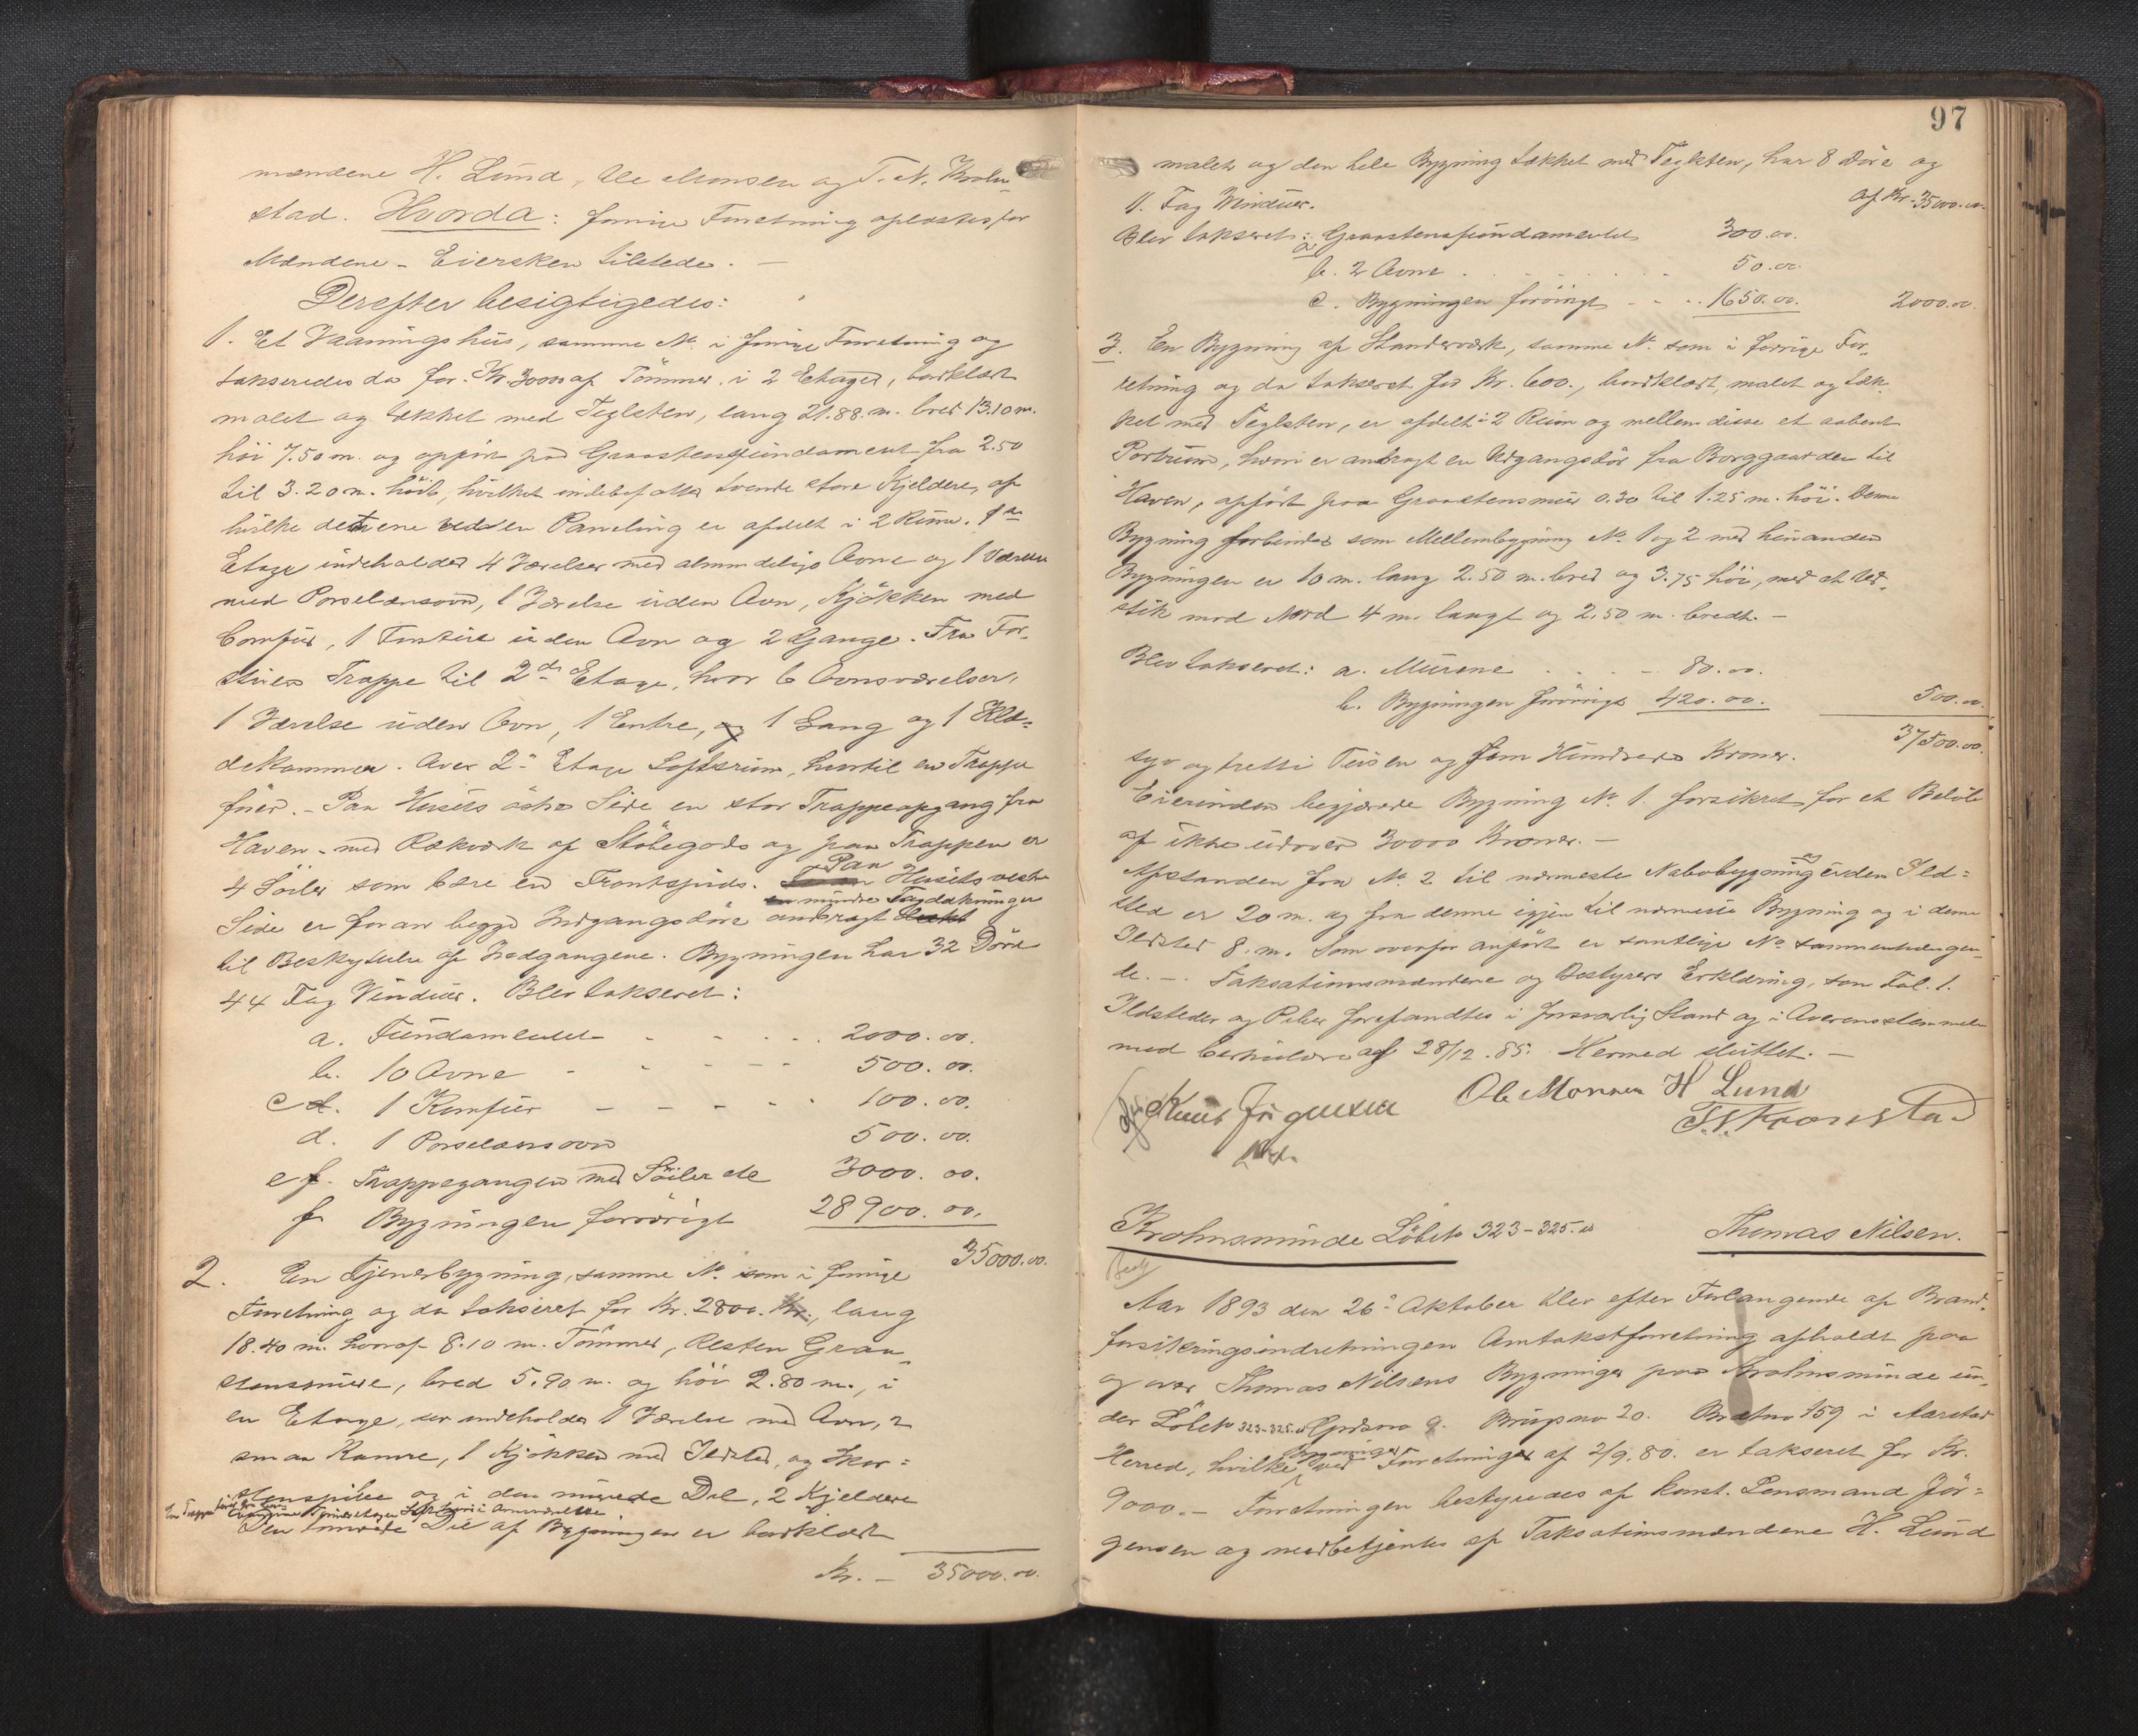 mændene H. Lund, Ole Monsen og T. N. Krohn-
stad. Hvorda: forrige Forretning oplæstes for
Mændene - Eiersken tilstede. -
Derefter besigtigedes:
1. Et Vaaningshus, samme No. i forrige Forretning og
takseredes da for Kr. 30000 af Tømmer i 2 Etager, bordklædt
malet og tækket med Teglsten, lang 21.88 m. bred 13.10 m.
høi 7.50 m. og opført paa Graastensfundament fra 2.50
til 3.20 m. høit, hvilket indebefatter tvende store Kjeldere, af
hvilke det ene ved en Paneling er afdelt i 2 Rum. 1ste
Etage indeholder 4 Værelser med almindelige Ovne og 1 Værelse
med Porselænsovn, 1 Værelse uden Ovn, Kjøkken med
Comfur, 1 Forstue uden Ovn og 2 Gange. Fra For-
stuen Trappe til 2den Etage, hvor 6 Ovnsværelser,
1 Værelse uden Ovn, 1 Entre, og 1 Gang og 1 Klæ-
dekammer. Over 2den Etage Loftsrum, hvortil en Trappe
fører. - Paa Husets østre Side en stor Trappeopgang fra
Haven - med Rækværk af Støbegods og paa Trappen er
4 Søiler som bære en Frontspids. Paa Husets vestre
Side er foran begge Indgangsdøre anbragt en mindre Tagdækninger
til Beskyttelse af Indgangene. Bygningen har 32 Døre
44 Fag Vinduer. Blev takseret:
a. Fundamentet - - - . . 2000.00.
b. 10 Ovne - - - - - 500.00.
c. 1 Komfur - - - - . 100.00.
d. 1 Porselænsovn 500.00.
e. Trappegangen med Søiler etc 3000.00.
f Bygningen forøvrigt 28900.00.
35000.00.
2. En Tjenerbygning, samme No. som i forrige
Forretning og da takseret for Kr. 2800. Kr., lang
18.40 m. hvoraf 8.10 m. Tømmer, Resten Graa-
stensmure, bred 5.90 m. og høi 2.80 m., i
en Etage, der indeholder 1 Værelse med Ovn, 2
smaa Kamre, 1 Kjøkken med Ildsted, og Skor-
stenspibe og i den murede Del, 2 Kjeldere
Den tømrede Del af Bygningen er bordklædt
Kr. - 35000.00.
97
malet og den hele Bygning tækket med Teglsten, har 8 Døre og
11. Fag Vinduer. af Kr. 35000.00.
Blev takseret: a. Graastensfundamentet 300.00.
b. 2 Ovne . . . . . . 50.00.
c. Bygningen forøvrigt - - . . 1650.00. 2000.00.
3. En Bygning af Standerværk, samme No. som i forrige For-
retning og da takseret for Kr. 600., bordklædt, malet og tæk-
ket med Teglsten, er afdelt i 2 Rum og mellem disse et aabent
Portrum, hvori er anbragt en Udgangsdør fra Borggaarden til
Haven, opført paa Graastensmur 0.30 til 1.25 m. høi. Denne
Bygning forbinder som Mellembygning No. 1 og 2 med hinanden
Bygningen er 10 m. lang 2.50 m. bred og 3.75 høi, med et Ud-
stik mod Nord 4 m. langt og 2.50 m. bredt. -
Blev takseret: a. Murene . . . - 80.00.
b. Bygningen forøvrigt 420.00. 500.00.
37500.00.
syv og tretti Tusen og fem Hundrede Kroner.
Eierinden begjærede Bygning No. 1. forsikret for et Beløb
af ikke udover 30000 Kroner. -
Afstanden fra No. 2 til nærmeste Nabobygning uden Ild-
sted er 20 m. og fra denne igjen til nærmeste Bygning og i denne
Ildsted 8. m. Som ovenfor anført er samtlige No. sammenhængen-
de. - . Taksationsmændene og Bestyrers Erklæring, som Fol. 1.
Ildsteder og Piber forefandtes i forsvarlig Stand og i Overensstemmelse
med Cerkulære af 28/12.85. Hermed sluttet. -
Knut Jørgensen Ole Monsen H Lund
T. N. Kronstad
Krohnsminde Løbeno 323-325.a Thomas Nilsen.
Aar 1893 den 26de Oktober blev efter Forlangende af Brand-
forsikringsindretningen Omtakstforretning afholdt paa
og over Thomas Nilsens Bygninger paa Krohnsminde un-
der Løbeno 323-325.a Gardsno 9. Brugsno 20. Brandno 159 i Aarstad
Herred, hvilke Bygninger ved Forretninger af 2/9.80. er takseret for Kr.
9000. - Forretningen bestyredes af konst. Lensmand Jør-
gensen og medbetjentes af Taksationsmændene H. Lund